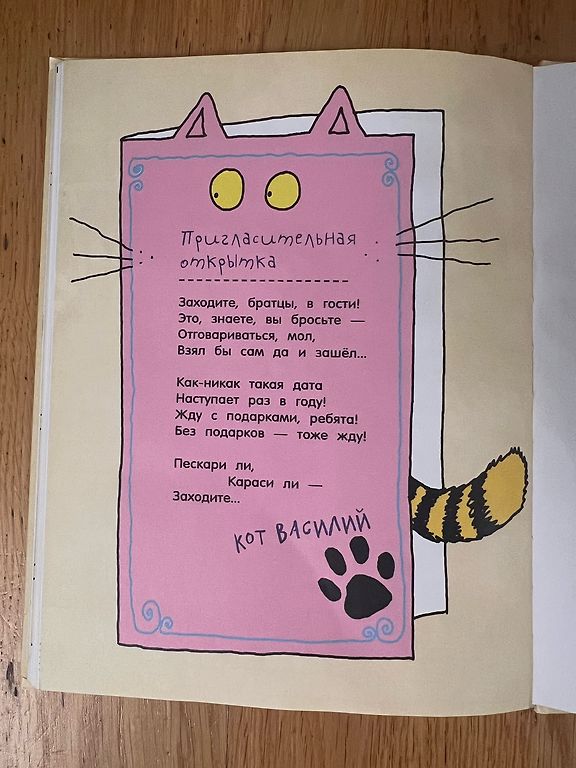 Пригласительная
открытка
Заходите, братцы, в гости!
Это, знаете, вы бросьте —
Отговариваться, мол,
Взял бы сам да и зашёл...
Как-никак такая дата
Наступает раз в году!
Жду с подарками, ребята!
Без подарков — тоже жду!
Пескари ли,
Караси ли —
Заходите...
КОТ ВАСИЛИЙ